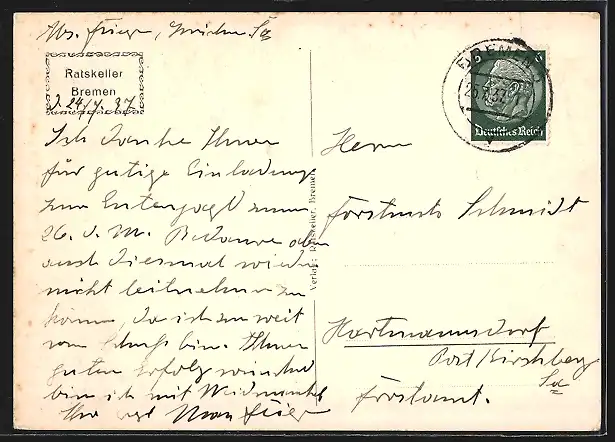 Ratskeller
Bremen
d. 24/7. 37.
Ich danke Ihnen
für gütige Einladung
zur Entenjagd zum
26. d. M. Bedaure aber
auch diesmal wieder
nicht teilnehmen zu
können, da ich zu weit
vom Schuß bin. Ihnen
guten Erfolg wünschend
bin ich mit Weidmannsheil
Ihr
Verlag: Ratskeller, Bremen
BREMEN
6 6
Deutsches Reich
Herrn
Schmidt
Hartmannsdorf
Post Kirchberg
Sa
Forstamt.